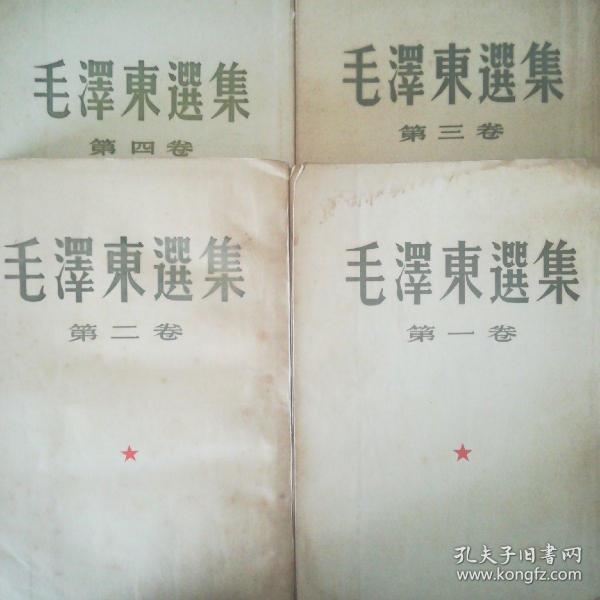 毛澤東選集
第四卷
毛澤東選集
第三卷
毛澤東選集
第二卷
毛澤東選集
第一卷
孔夫子旧書网
www.kongfz.com